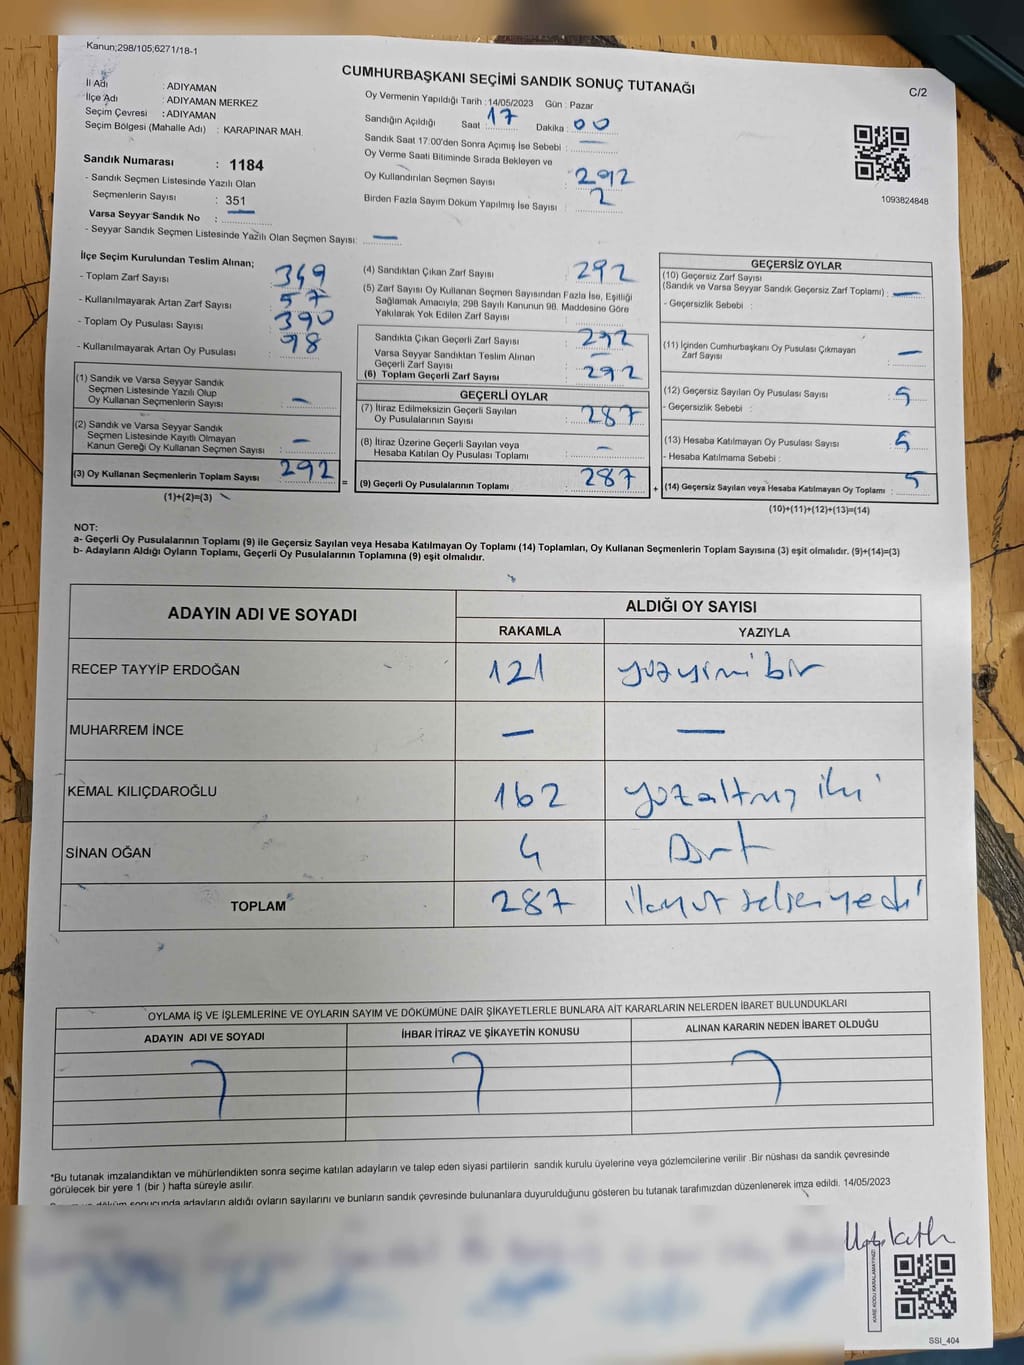 Kanun;298/105;6271/18-1
CUMHURBAŞKANI SEÇİMİ SANDIK SONUÇ TUTANAĞI
C/2
İl Adı : ADIYAMAN
İlçe Adı : ADIYAMAN MERKEZ
Seçim Çevresi : ADIYAMAN
Seçim Bölgesi (Mahalle Adı) : KARAPINAR MAH.
Oy Vermenin Yapıldığı Tarih : 14/05/2023 Gün : Pazar
Sandığın Açıldığı Saat : 17 Dakika : 00
Sandık Saat 17:00'den Sonra Açımış İse Sebebi : —
Oy Verme Saati Bitiminde Sırada Bekleyen ve
Oy Kullandırılan Seçmen Sayısı : 292
Birden Fazla Sayım Döküm Yapılmış İse Sayısı : 2
1093824848
Sandık Numarası : 1184
- Sandık Seçmen Listesinde Yazılı Olan
Seçmenlerin Sayısı : 351
Varsa Seyyar Sandık No : —
- Seyyar Sandık Seçmen Listesinde Yazılı Olan Seçmen Sayısı: —
İlçe Seçim Kurulundan Teslim Alınan;
- Toplam Zarf Sayısı 349
- Kullanılmayarak Artan Zarf Sayısı : 57
- Toplam Oy Pusulası Sayısı : 390
- Kullanılmayarak Artan Oy Pusulası : 98
(1) Sandık ve Varsa Seyyar Sandık
Seçmen Listesinde Yazılı Olup
Oy Kullanan Seçmenlerin Sayısı : —
(2) Sandık ve Varsa Seyyar Sandık
Seçmen Listesinde Kayıtlı Olmayan
Kanun Gereği Oy Kullanan Seçmen Sayısı : —
(3) Oy Kullanan Seçmenlerin Toplam Sayısı : 292 =
(1)+(2)=(3)
(4) Sandıktan Çıkan Zarf Sayısı : 292
(5) Zarf Sayısı Oy Kullanan Seçmen Sayısından Fazla İse, Eşitliği
Sağlamak Amacıyla; 298 Sayılı Kanunun 98. Maddesine Göre
Yakılarak Yok Edilen Zarf Sayısı :
Sandıkta Çıkan Geçerli Zarf Sayısı : 292
Varsa Seyyar Sandıktan Teslim Alınan
Geçerli Zarf Sayısı : —
(6) Toplam Geçerli Zarf Sayısı : 292
GEÇERLİ OYLAR
(7) İtiraz Edilmeksizin Geçerli Sayılan
Oy Pusulalarının Sayısı : 287
(8) İtiraz Üzerine Geçerli Sayılan veya
Hesaba Katılan Oy Pusulası Toplamı : —
(9) Geçerli Oy Pusulalarının Toplamı : 287 +
GEÇERSİZ OYLAR
(10) Geçersiz Zarf Sayısı
(Sandık ve Varsa Seyyar Sandık Geçersiz Zarf Toplamı) : —
- Geçersizlik Sebebi :
(11) İçinden Cumhurbaşkanı Oy Pusulası Çıkmayan
Zarf Sayısı : —
(12) Geçersiz Sayılan Oy Pusulası Sayısı : 5
- Geçersizlik Sebebi :
(13) Hesaba Katılmayan Oy Pusulası Sayısı : 5
- Hesaba Katılmama Sebebi :
(14) Geçersiz Sayılan veya Hesaba Katılmayan Oy Toplamı : 5
(10)+(11)+(12)+(13)=(14)
NOT:
a- Geçerli Oy Pusulalarının Toplamı (9) ile Geçersiz Sayılan veya Hesaba Katılmayan Oy Toplamı (14) Toplamları, Oy Kullanan Seçmenlerin Toplam Sayısına (3) eşit olmalıdır. (9)+(14)=(3)
b- Adayların Aldığı Oyların Toplamı, Geçerli Oy Pusulalarının Toplamına (9) eşit olmalıdır.
ADAYIN ADI VE SOYADI ALDIĞI OY SAYISI
RAKAMLA YAZIYLA
RECEP TAYYİP ERDOĞAN 121 yüzyirmi bir
MUHARREM İNCE — —
KEMAL KILIÇDAROĞLU 162 yüzaltmış iki
SİNAN OĞAN 4 Dört
TOPLAM 287 ikiyüz seksen yedi
OYLAMA İŞ VE İŞLEMLERİNE VE OYLARIN SAYIM VE DÖKÜMÜNE DAİR ŞİKAYETLERLE BUNLARA AİT KARARLARIN NELERDEN İBARET BULUNDUKLARI
ADAYIN ADI VE SOYADI İHBAR İTİRAZ VE ŞİKAYETİN KONUSU ALINAN KARARIN NEDEN İBARET OLDUĞU
*Bu tutanak imzalandıktan ve mühürlendikten sonra seçime katılan adayların ve talep eden siyasi partilerin sandık kurulu üyelerine veya gözlemcilerine verilir .Bir nüshası da sandık çevresinde
görülecek bir yere 1 (bir ) hafta süreyle asılır.
döküm sonucunda adayların aldığı oyların sayılarını ve bunların sandık çevresinde bulunanlara duyurulduğunu gösteren bu tutanak tarafımızdan düzenlenerek imza edildi. 14/05/2023
KARE KODU KARALAMAYINIZ!
SSI_404